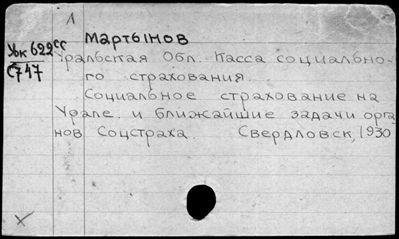 1
Мартынов
Убк 622сс
С747
Уральская Обл. Касса социально-
го страхования.
Социальное страхование на
Урале и ближайшие задачи орга
нов Соцстраха. Свердловск, 1930